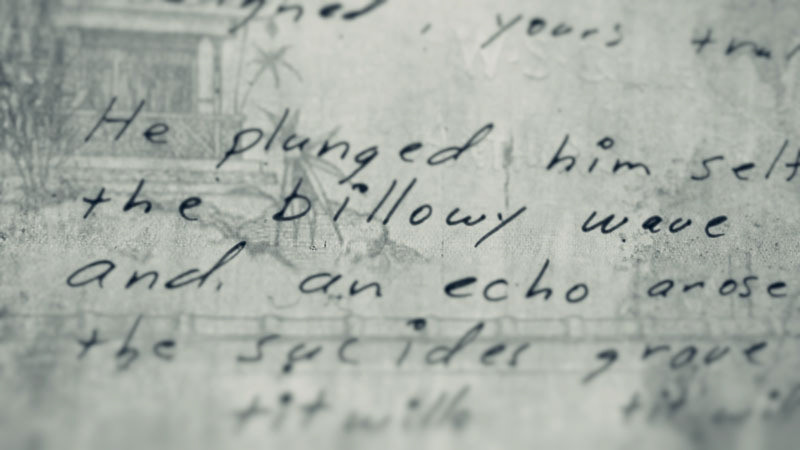 yours
He plunged him self
the billowy wave
and. an echo arose
the sucides grave
tit willo